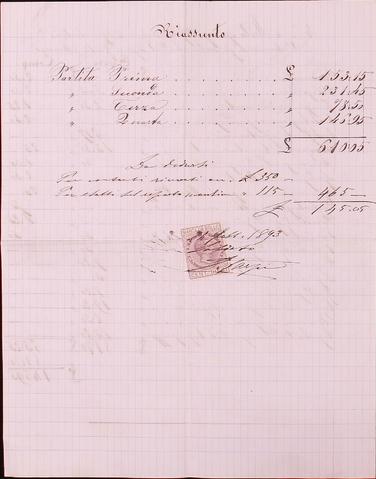 Riassunto
Partita Prima . . . . . . . . £ 153.15
" Seconda . . . . . . . . " 231.45
" Terza . . . . . . . . " 78.50
" Quarta . . . . . . . . " 146.95
£ 610.05
Da dedursi
Per contanti ricevuti £ 350 —
Per del " 115 — 465 —
£ 145.05
1893